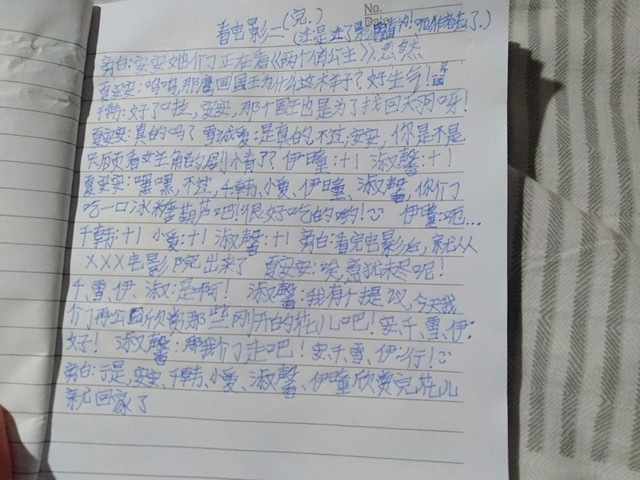 No.
Date
看电影二(完.)
(还是去了
旁白:安安她们正在看《两个俏公主》.忽然
夏安安:呜呜,那鹰国国王为什么这木羊子?好生气!
千韩:好了啦,安安,那个国王也是为了找回天鹅呀!
夏安安:真的吗?雪诚爱:是真的,不过,安安,你是不是
只顾看女主角的剧情了?伊瞳:+1 淑馨:+1
夏安安:嘿嘿,不过,千韩、小爱、伊瞳、淑馨,你们
吃一口冰糖葫芦吧!很好吃的哟! 伊瞳:呃...
千韩:+1 小爱:+1 淑馨:+1 旁白:看完电影后,就从
XXX电影院出来了 夏安安:唉,意犹未尽呢!
千、雪、伊、淑:是啊! 淑馨:我有个提议,今天我
们再去欣赏那些刚开的花儿吧!安、千、雪、伊:
好! 淑馨:那我们走吧!安、千、雪、伊:行!
旁白:于是,安安、千韩、小爱、淑馨、伊瞳欣赏完花儿
就回家了